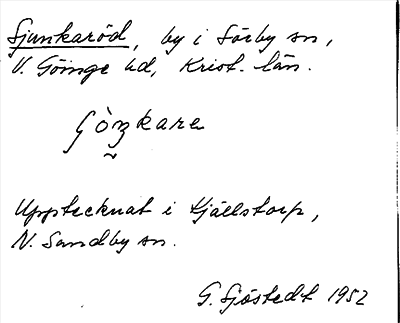 Sjunkaröd, by i Sörby sn,
V. Göinge hd, Krist. län.
Upptecknat i Kjällstorp,
N. Sandby sn.
G. Sjöstedt 1952